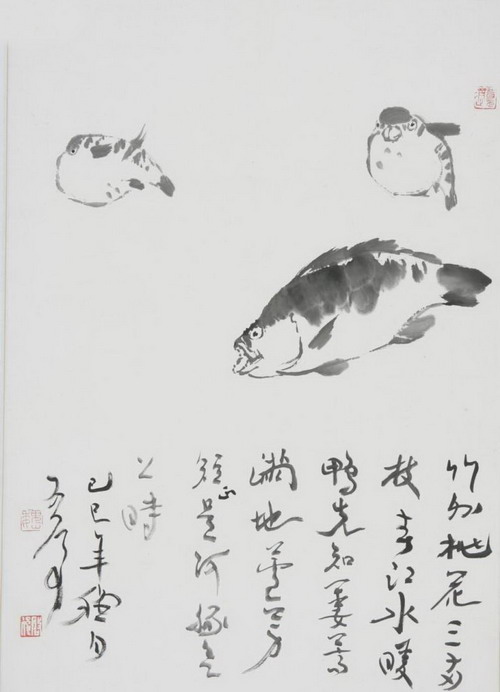 竹外桃花三两
枝春江水暖
鴨先知蔞蒿
滿地蘆芽
短正是河豚欲
上時
己巳年